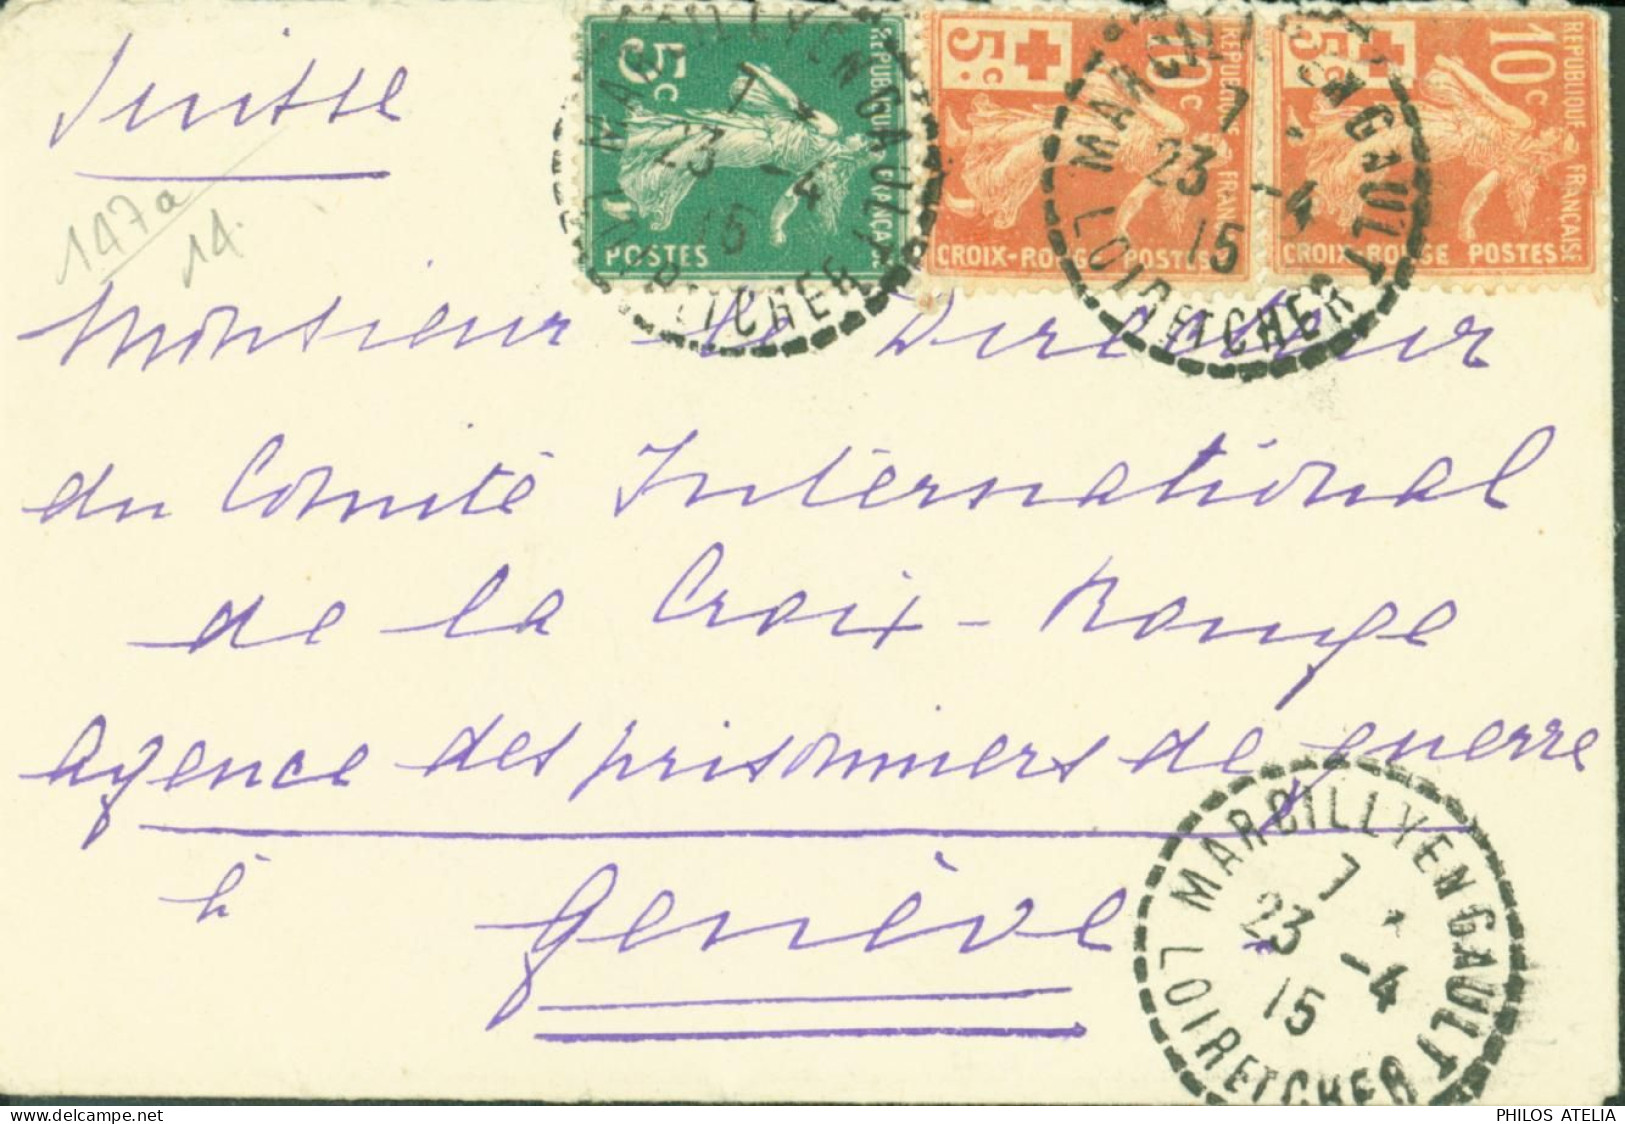 Suisse
5c RÉPUBLIQUE FRANÇAISE POSTES
5c 10c RÉPUBLIQUE FRANÇAISE CROIX-ROUGE POSTES
5c 10c RÉPUBLIQUE FRANÇAISE CROIX-ROUGE POSTES
MARCILLY EN GAULT
7
23 -4
15
LOIR ET CHER
MARCILLY EN GAULT
7
23 -4
15
LOIR ET CHER
147a
14.
Monsieur le Directeur
du Comité International
de la Croix-Rouge
Agence des prisonniers de guerre
à
Genève
MARCILLY EN GAULT
7
23 -4
15
LOIR ET CHER
delcampe.net
PHILOS ATELIA